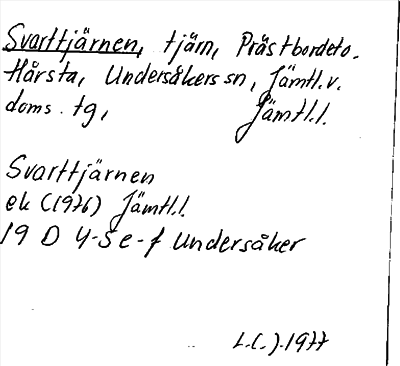 Svarttjärnen, tjärn, Prästbordeto.
Hårsta, Undersåkers sn, Jämtl. v.
doms. tg, Jämtl.l.
Svarttjärnen
ek (1976) Jämtl.l.
19 D 4-5 e-f Undersåker
L.(.).1977